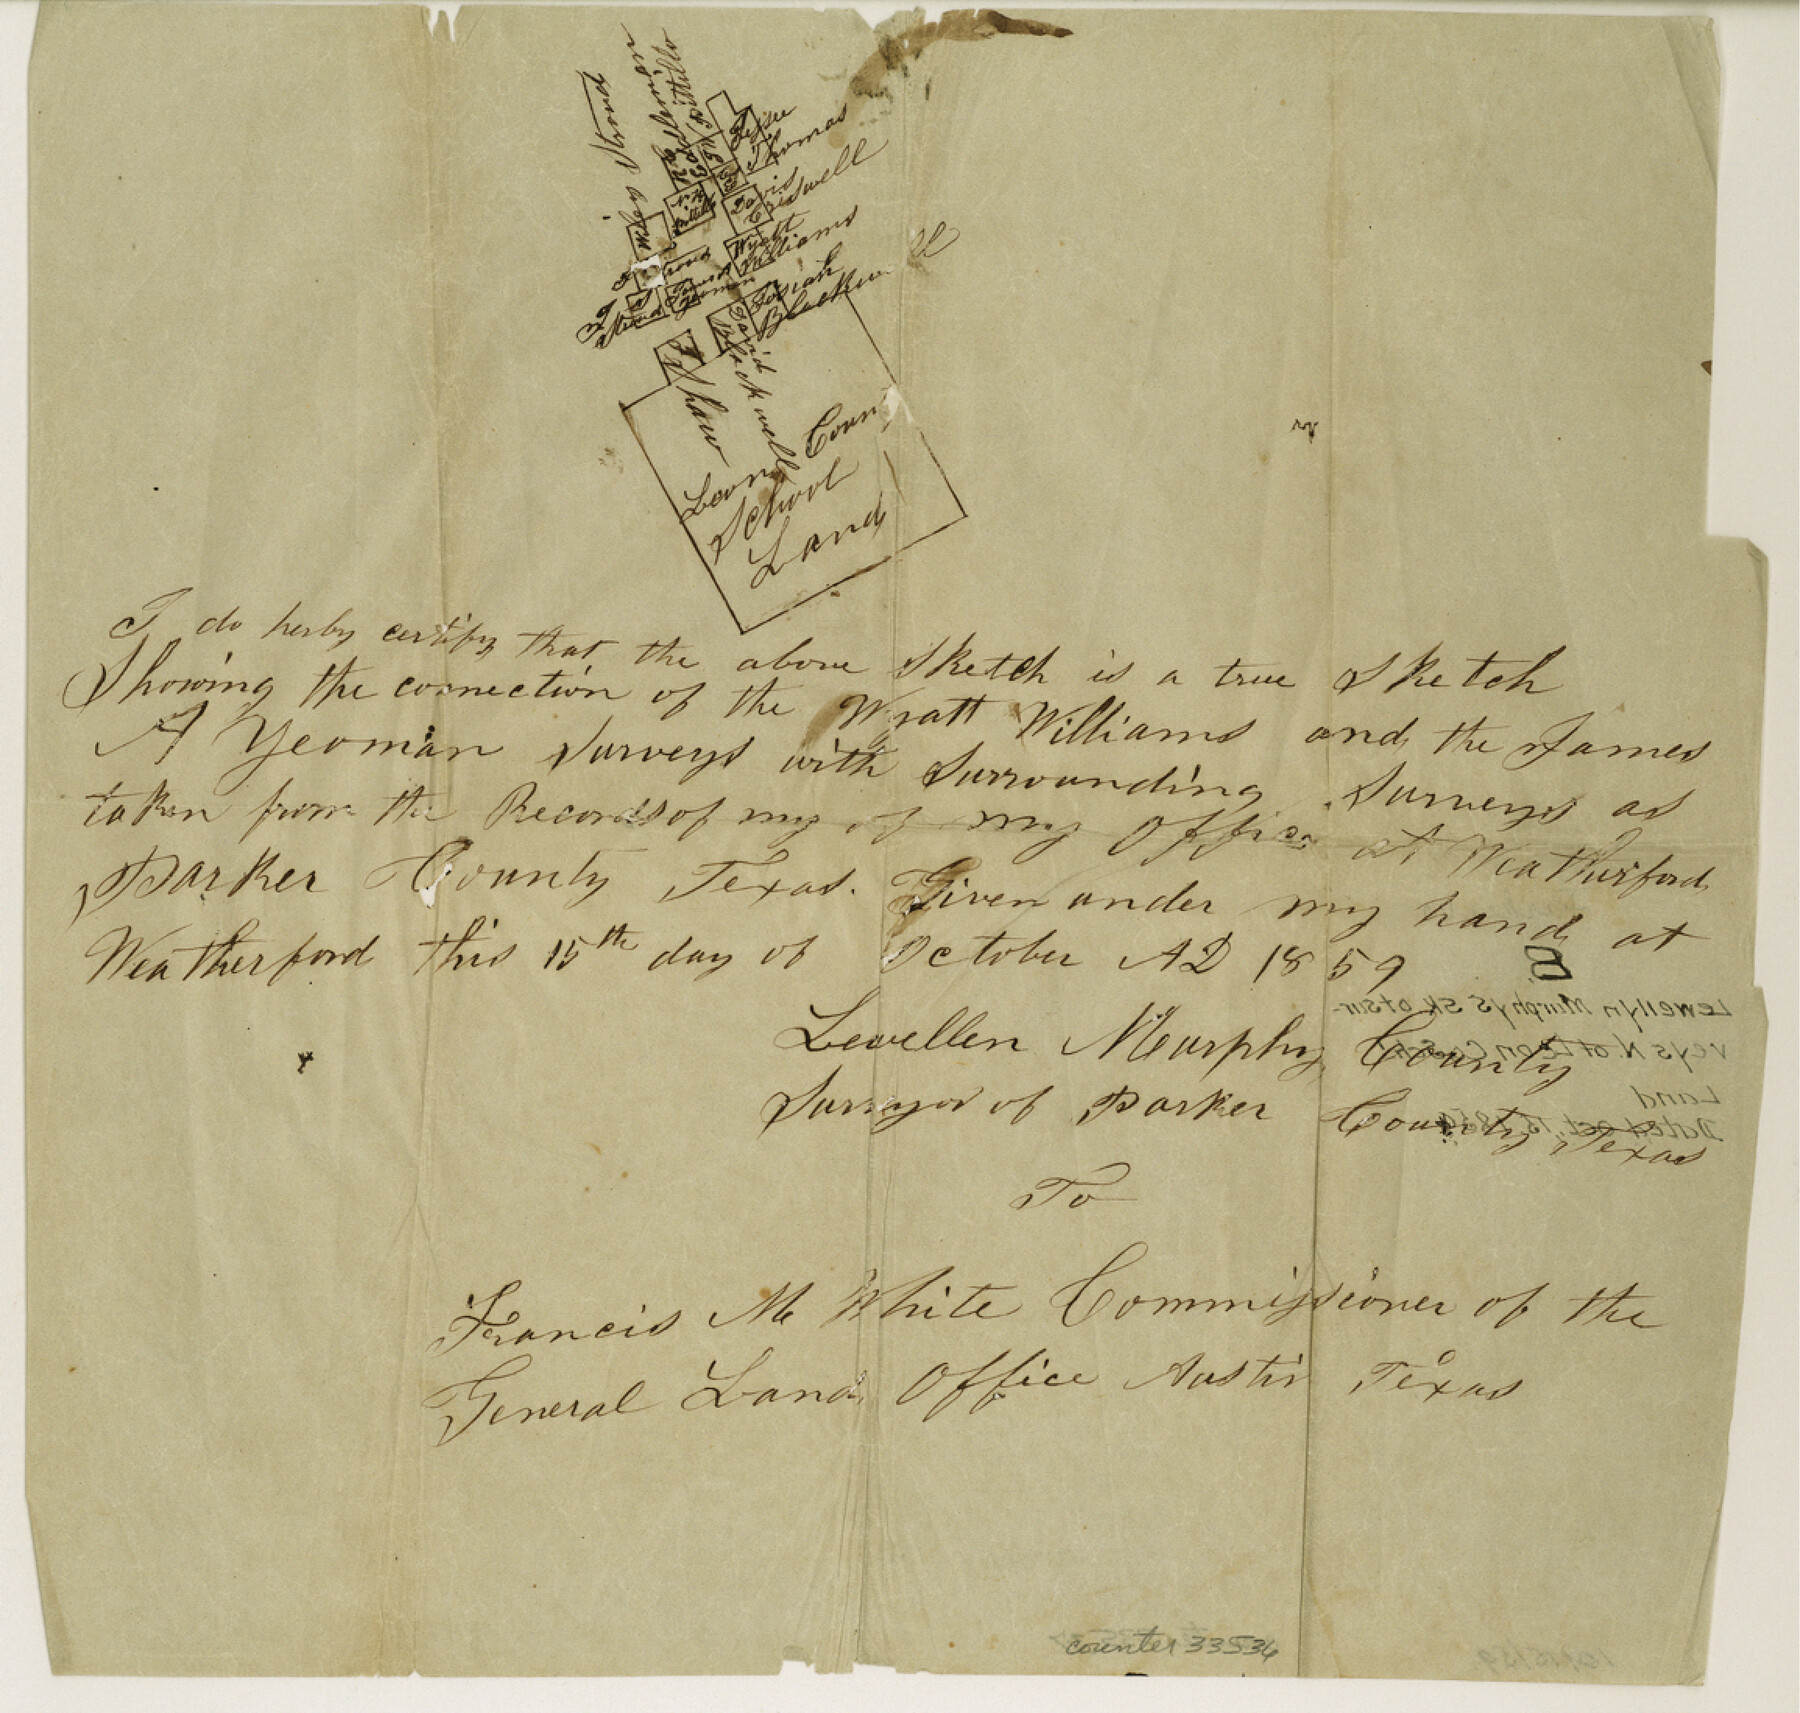 Jesse
Thomas
Davis
Criswell
Wyatt
Williams
Josiah
Blackwell
David
Blackwell
James
Yeoman
J Shaw
Leon Coun
School
Land
I do herby certify that the above Sketch is a true Sketch
Showing the connection of the Wyatt Williams and the James
A Yeoman Surveys with Surrounding Surveys as
taken from the Records of my of my Office at Weatherford
Parker County Texas. Given under my hand at
Weatherford this 15th day of October AD 1859
Lewellen Murphy County
Surveyor of Parker County, Texas
To
Francis M White Commissioner of the
General Land Office Austin Texas
Lewellyn Murphy's sk of sur-
veys N. of Leon Co Sch
Land
Dated Oct. 15 1859
counter 33536